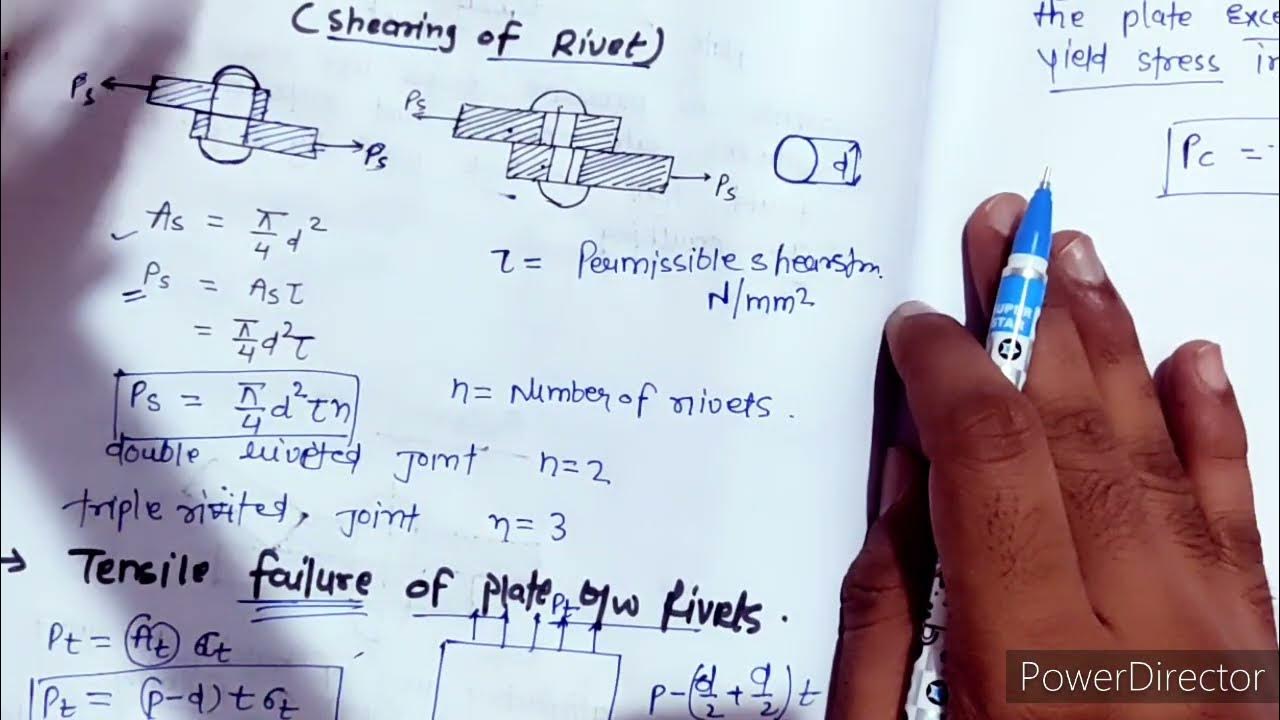 (Shearing of Rivet)
Ps
Ps
Ps
Ps
d
As = π/4 d²
Ps = Asτ
= π/4 d²τ
Ps = π/4 d²τn
τ = Permissible shear
N/mm2
n = Number of rivets.
double riveted joint n=2
triple rivited, joint n=3
→ Tensile failure of plate b/w Rivets.
Pt = At σt
Pt = (p-d) t σt
Pt
P-(d/2 + d/2)t
the plate
yield stress
Pc =
SUPER
STAR
PowerDirector